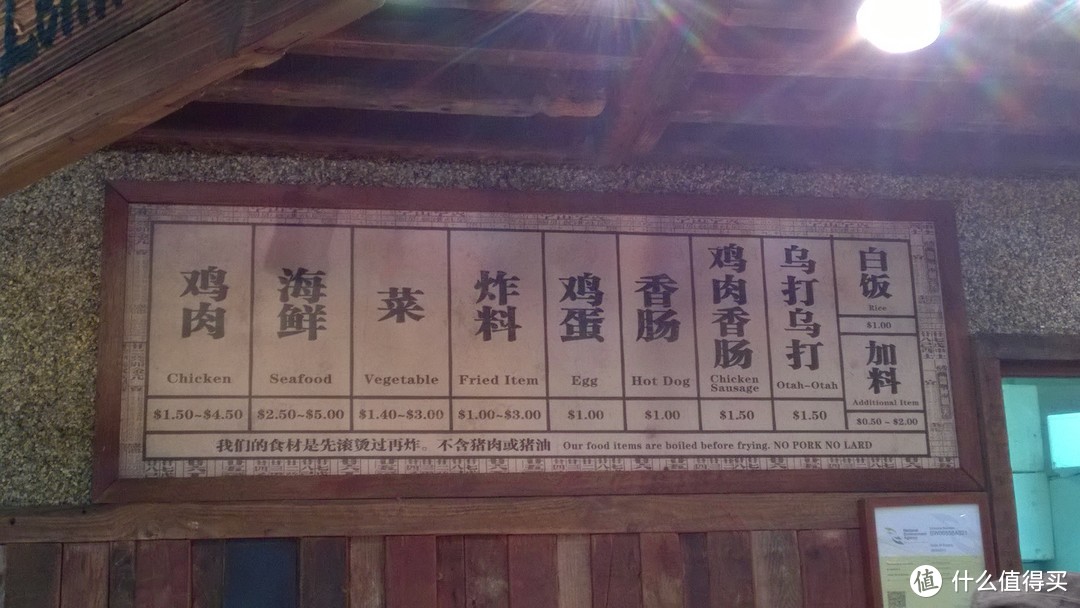 鸡肉
Chicken
$1.50~$4.50
海鲜
Seafood
$2.50~$5.00
菜
Vegetable
$1.40~$3.00
炸料
Fried Item
$1.00~$3.00
鸡蛋
Egg
$1.00
香肠
Hot Dog
$1.00
鸡肉香肠
Chicken
Sausage
$1.50
乌打乌打
Otah-Otah
$1.50
白饭
Rice
$1.00
加料
Additional Item
$0.50 ~ $2.00
我们的食材是先滚烫过再炸。不含猪肉或猪油 Our food items are boiled before frying. NO PORK NO LARD
值 什么值得买